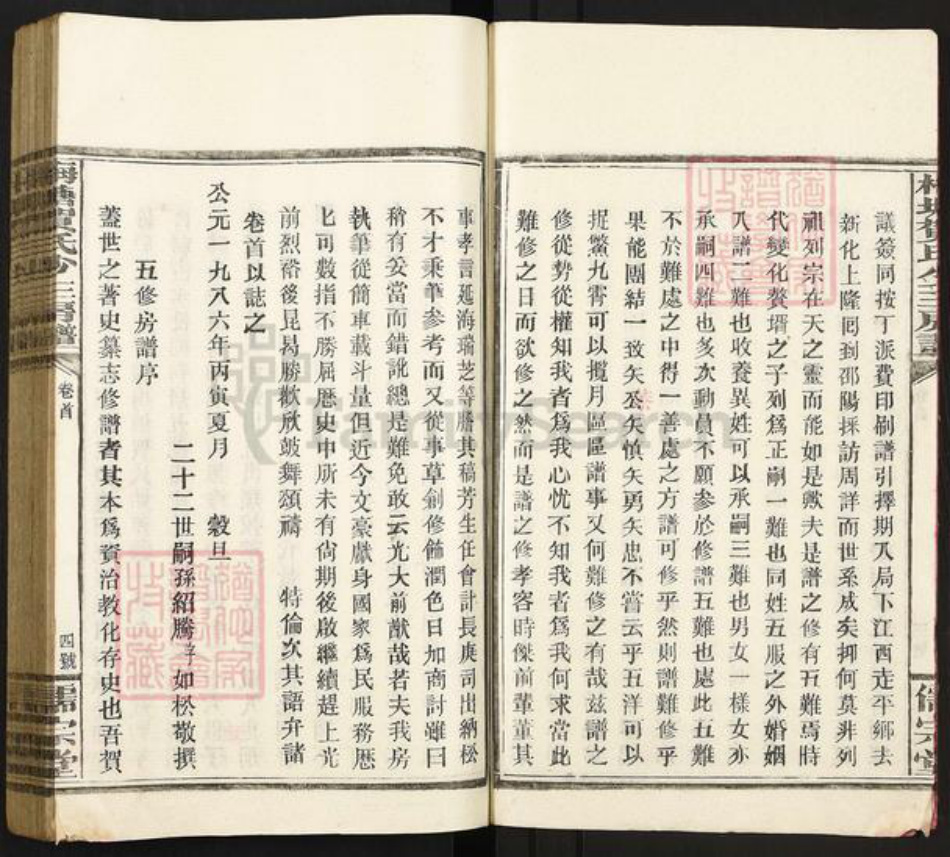 議簽同按丁派費印刷譜引擇期入局下江西走平鄉去
新化上隆囘到邵陽採訪周詳而世系成矣抑何莫非列
祖列宗在天之靈而能如是歟夫是譜之修有五難焉時
代變化贅壻之子列爲正嗣一難也同姓五服之外婚姻
入譜二難也收養異姓可以承嗣三難也男女一樣女亦
承嗣四難也多次動員不願參於修譜五難也處此五難
不於難處之中得一善處之方譜可修乎然則譜難修乎
果能團結一致矢公矢慎矢勇矢忠不嘗云乎五洋可以
捉鱉九霄可以攬月區區譜事又何難修之有哉兹譜之
修從勢從權知我者爲我心忧不知我者爲我何求當此
難修之日而欲修之然而是譜之修孝容時傑前輩董其
事孝言延海瑞芝等勝其稿芳生任會計長庚司出納松
不才乘筆參考而又從事草創修飾潤色日加商討雖曰
稍有妥當而錯訛總是難免敢云光大前猷哉若夫我房
執筆從簡車載斗量但近今文豪獻身國家爲民服務歷
匕可數指不勝屈歷史中所未有尙期後啟繼續趕上光
前烈裕後昆曷勝歡欣皷舞頌禱 特倫次其語弁諸
卷首以誌之
公元一九八六年丙寅夏月 穀旦
二十二世嗣孫紹騰字如松敬撰
五修房譜序
蓋世之著史纂志修譜者其本爲資治教化存史也吾賀
卷首
四號
儒宗堂
FamilySearch